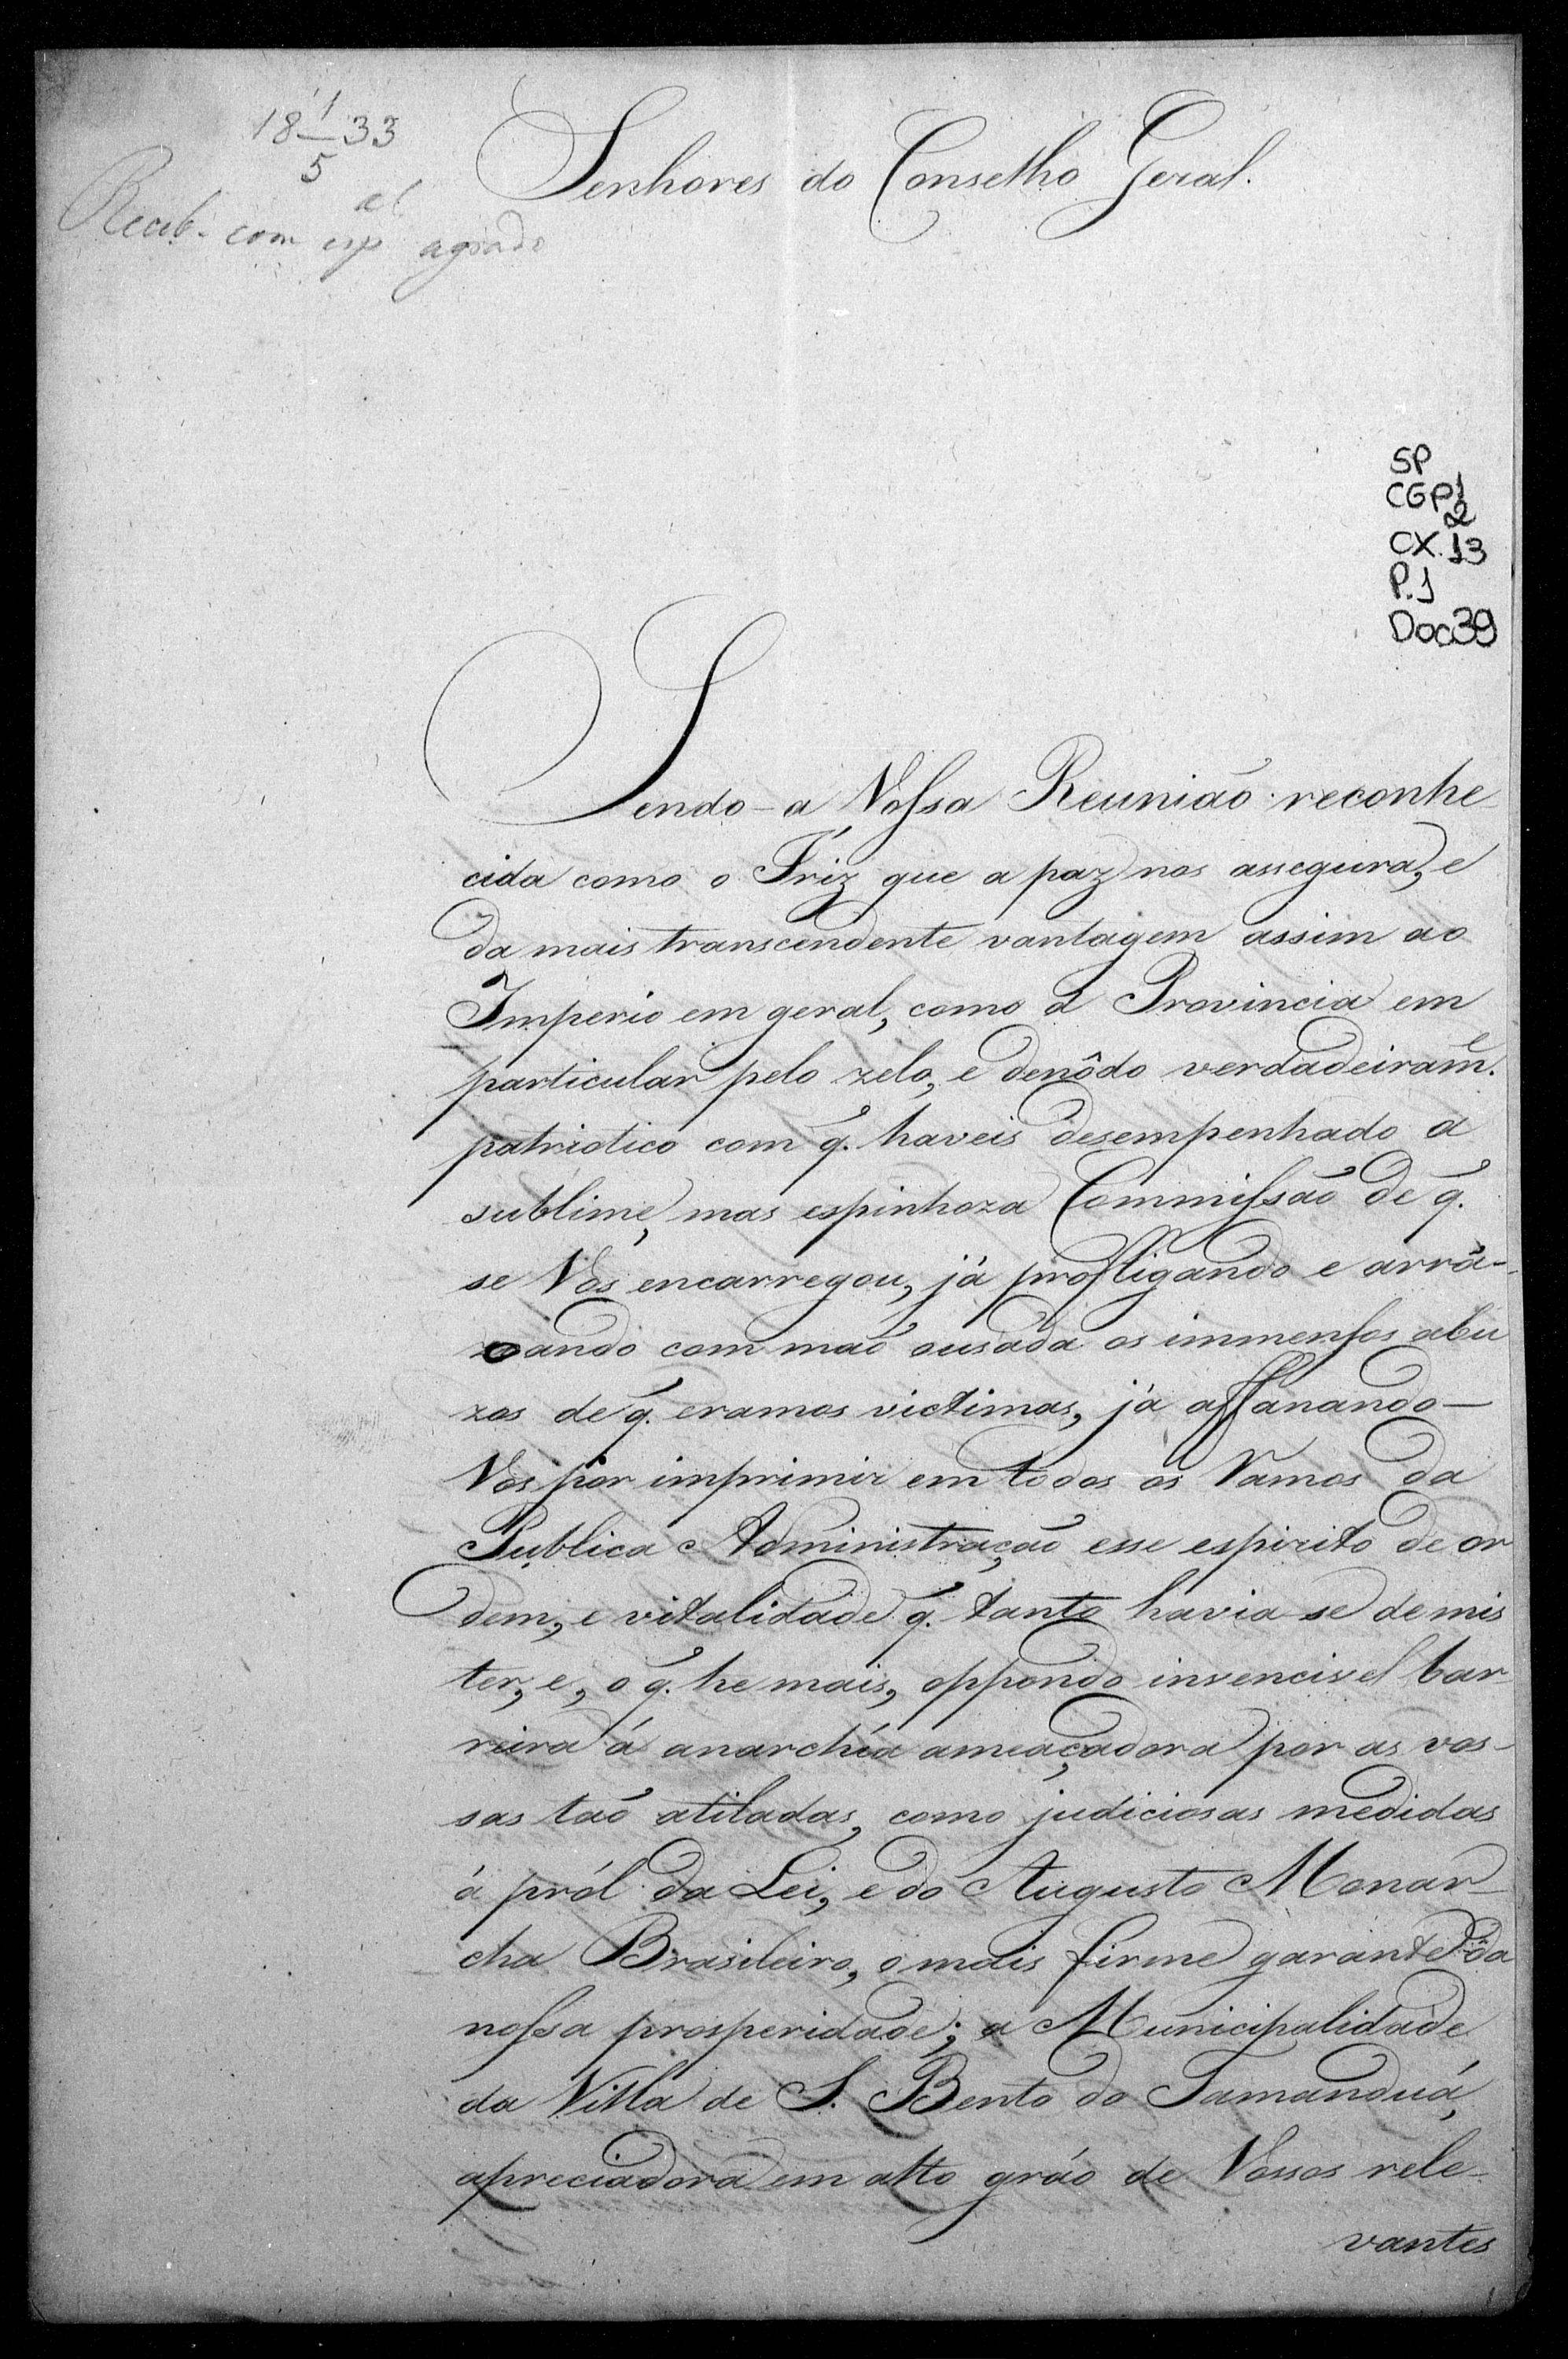 18 1/5 33
Receb. com esp.al agrado
Senhores do Conselho Geral.
SP
CGP1
2
CX.13
P.1
Doc39
Sendo a Vossa Reunião reconhe
cida como o Iriz que a paz nos assegura, e
da mais transcendente vantagem assim ao
Imperio em geral, como á Provincia em
particular pelo zelo, e denôdo verdadeiram.e
patriotico com q. haveis desempenhado a
sublime, mas espinhoza Commissão de q.
se Vos encarregou, já profligando e arrâ-
zoando com mão ousada os immensos abu
zos de q. eramos victimas, já affanando-
Vos por imprimir em todos os Ramos da
Publica Administração esse espirito de or
dem, e vitalidade q. tanto havia-se de mis
ter, e, o q. he mais, oppondo invencivel bar
reira á anarchía ameaçadora por as vos-
sas tão atiladas, como judiciosas medidas
á pról da Lei, e do Augusto Monar-
cha Brasileiro, o mais firme garante da
nossa prosperidade; a Municipalidade
da Villa de S. Bento do Tamanduá,
apreciadora em alto gráo de Vossos rele-
vantes